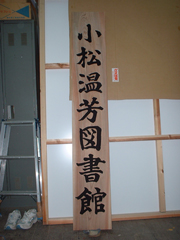 小松温芳図書館